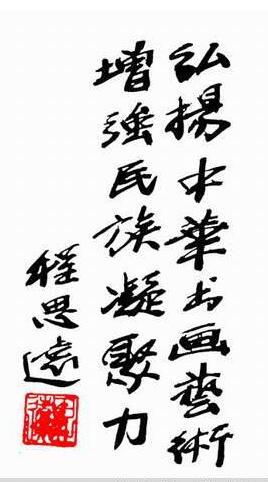 弘揚中華书画藝術
增强民族凝聚力
程思遠